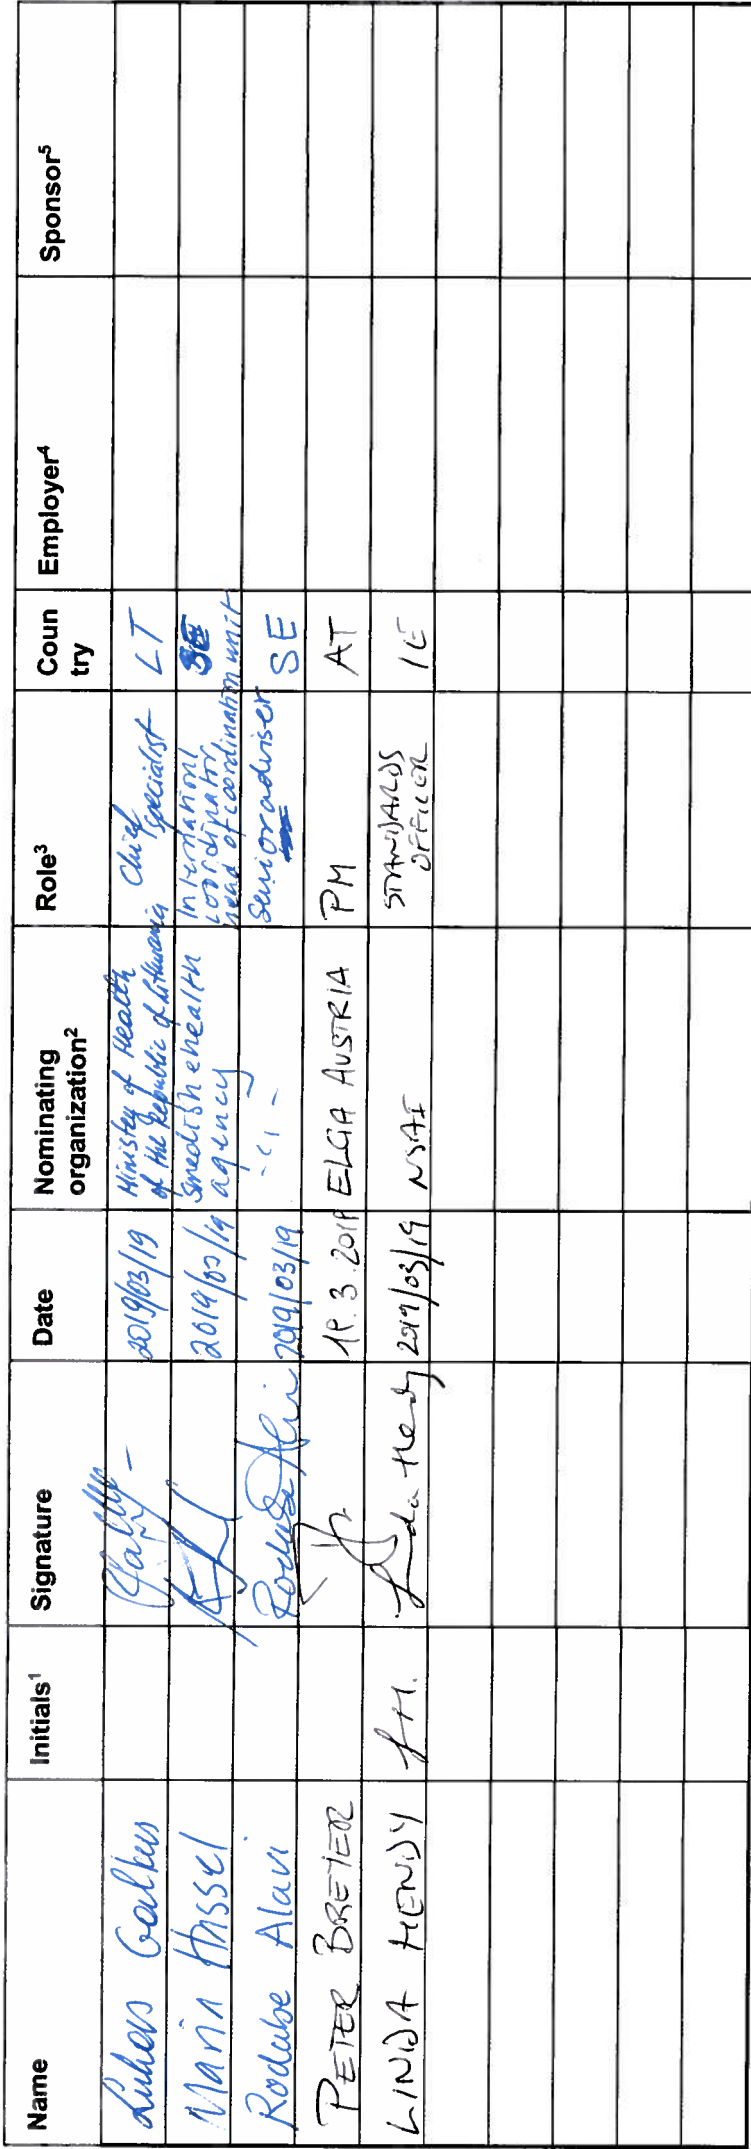 Name Initials¹ Signature Date Nominating organization² Role³ Coun try Employer⁴ Sponsor⁵
Lukas Galkus 2019/03/19 Ministry of Health of the Republic of Lithuania Chief specialist LT
Marin Hassel 2019/03/19 Swedish ehealth agency International coordinator head of coordination unit SE
Rodabe Alavi Rodabe Alavi 2019/03/19 - " - Senior adviser SE
PETER BREYER 19.3.2019 ELGA AUSTRIA PM AT
LINDA HENDY LH. Linda Hendy 2019/03/19 NSAI STANDARDS OFFICER IE